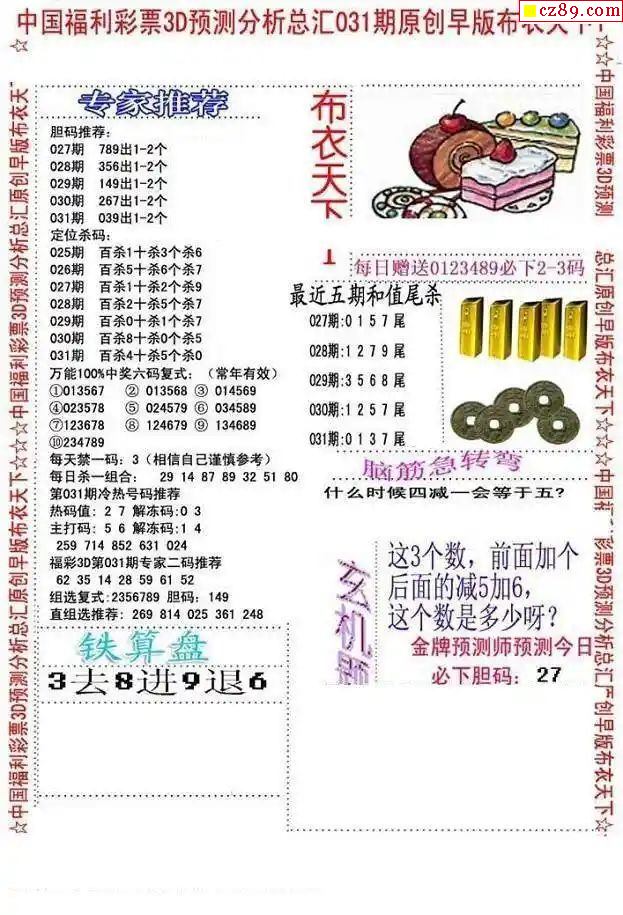 cz89.com
中国福利彩票3D预测分析总汇031期原创早版布衣天下
专家推荐
胆码推荐：
027期 789出1-2个
028期 356出1-2个
029期 149出1-2个
030期 267出1-2个
031期 039出1-2个
定位杀码：
025期 百杀1十杀3个杀6
026期 百杀5十杀6个杀7
027期 百杀1十杀2个杀9
028期 百杀2十杀5个杀7
029期 百杀0十杀1个杀7
030期 百杀8十杀0个杀5
031期 百杀4十杀5个杀0
万能100%中奖六码复式：（常年有效）
①013567 ② 013568 ③ 014569
④023578 ⑤ 024579 ⑥ 034589
⑦123678 ⑧ 124679 ⑨ 134689
⑩234789
每天禁一码：3（相信自己谨慎参考）
每日杀一组合： 29 14 87 89 32 51 80
第031期冷热号码推荐
热码值：2 7 解冻码:0 3
主打码：5 6 解冻码:1 4
259 714 852 631 024
福彩3D第031期专家二码推荐
62 35 14 28 59 61 52
组选复式:2356789 胆码：149
直组选推荐：269 814 025 361 248
铁算盘
3去8进9退6
布衣天下
1
每日赠送0123489必下2-3码
最近五期和值尾杀
027期:0 1 5 7 尾
028期:1 2 7 9 尾
029期:3 5 6 8 尾
030期:1 2 5 7 尾
031期:0 1 3 7 尾
脑筋急转弯
什么时候四减一会等于五?
玄机题
这3个数，前面加个
后面的减5加6,
这个数是多少呀?
金牌预测师预测今日
必下胆码： 27
☆中国福利彩票3D预测分析总汇原创早版布衣天下☆☆☆中国福利彩票3D预测分析总汇原创早版布衣天
☆☆中国福利彩票3D预测
总汇原创早版布衣天下☆☆☆中国
彩票3D预测分析总汇
创早版布衣天下☆